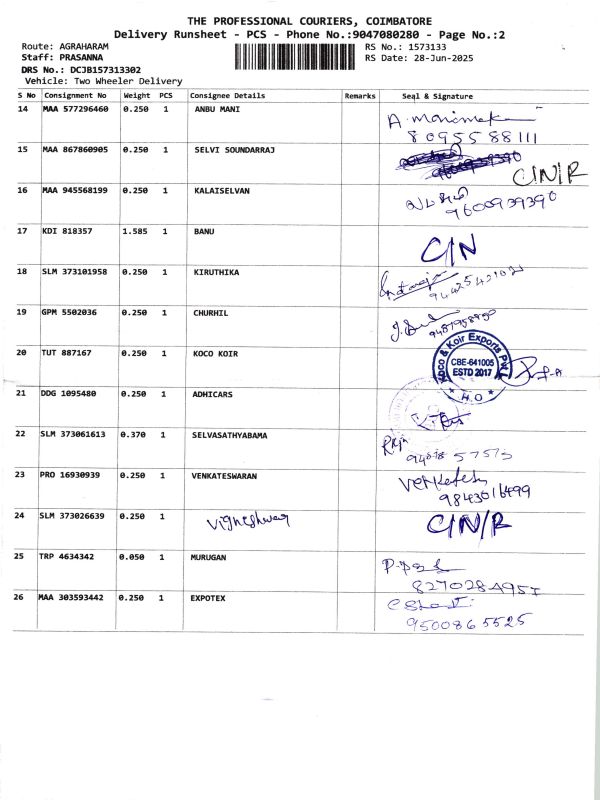 THE PROFESSIONAL COURIERS, COIMBATORE
Delivery Runsheet - PCS - Phone No.:9047080280 - Page No.:2
Route: AGRAHARAM RS No.: 1573133
Staff: PRASANNA RS Date: 28-Jun-2025
DRS No.: DCJB157313302
Vehicle: Two Wheeler Delivery
S No Consignment No Weight PCS Consignee Details Remarks Seal & Signature
14 MAA 577296460 0.250 1 ANBU MANI
8095588111
15 MAA 867860905 0.250 1 SELVI SOUNDARRAJ
C/N/R
16 MAA 945568199 0.250 1 KALAISELVAN
9600939390
17 KDI 818357 1.585 1 BANU C/N
18 SLM 373101958 0.250 1 KIRUTHIKA
19 GPM 5502036 0.250 1 CHURHIL
20 TUT 887167 0.250 1 KOCO KOIR
Koco & Koir Exports Pvt
CBE-641005
ESTD 2017
* H.O *
21 DDG 1095480 0.250 1 ADHICARS
22 SLM 373061613 0.370 1 SELVASATHYABAMA
23 PRO 16930939 0.250 1 VENKATESWARAN Venkatesh
9843016499
24 SLM 373026639 0.250 1 Vigneshwar C/N/R
25 TRP 4634342 0.050 1 MURUGAN
8270284957
26 MAA 303593442 0.250 1 EXPOTEX
9500865525